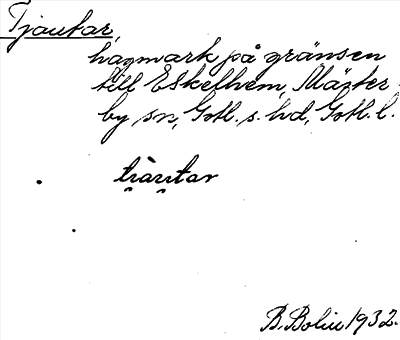 Tjautar,
hagmark på gränsen
till Eskelhem, Mäster-
by sn, Gotl. s. hd, Gotl. l.
B. Bolin 1932.